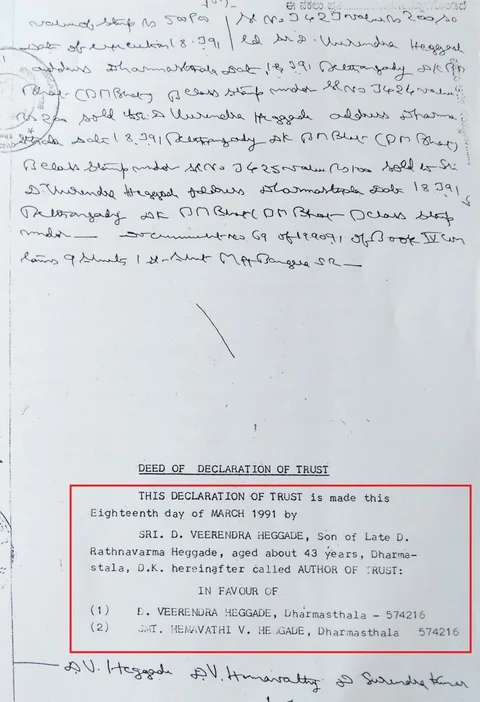 value of stamp Rs 500
Sl No 3423 value Rs 200
Date of execution 18.3.91 Sri D. Veerendra Heggade
address Dharmasthala Date 18.3.91 Belthangady DK
Bhat (DM Bhat) B class Stamp vendor Sl No 3424 value
Rs 200 sold to Sri D Veerendra Heggade address Dharma
sthala Date 18.3.91 Belthangady DK DM Bhat (DM Bhat)
B class Stamp vendor Sl No 3425 value Rs 100 sold to Sri
D Veerendra Heggade address Dharmasthala Date 18.3.91
Belthangady DK DM Bhat (DM Bhat) B class Stamp
vendor — Document No 69 of 1990-91 of Book IV
9 Sheets 1 st Sheet SR —
DEED OF DECLARATION OF TRUST
THIS DECLARATION OF TRUST is made this
Eighteenth day of MARCH 1991 by
SRI. D. VEERENDRA HEGGADE, Son of Late D.
Rathnavarma Heggade, aged about 43 years, Dharma-
stala, D.K. hereinafter called AUTHOR OF TRUST:
IN FAVOUR OF
(1) D. VEERENDRA HEGGADE, Dharmasthala - 574216
(2) SMT. HEMAVATHI V. HEGGADE, Dharmasthala 574216
D.V. Heggade D.V. Hemavathy D Surendra Kumar